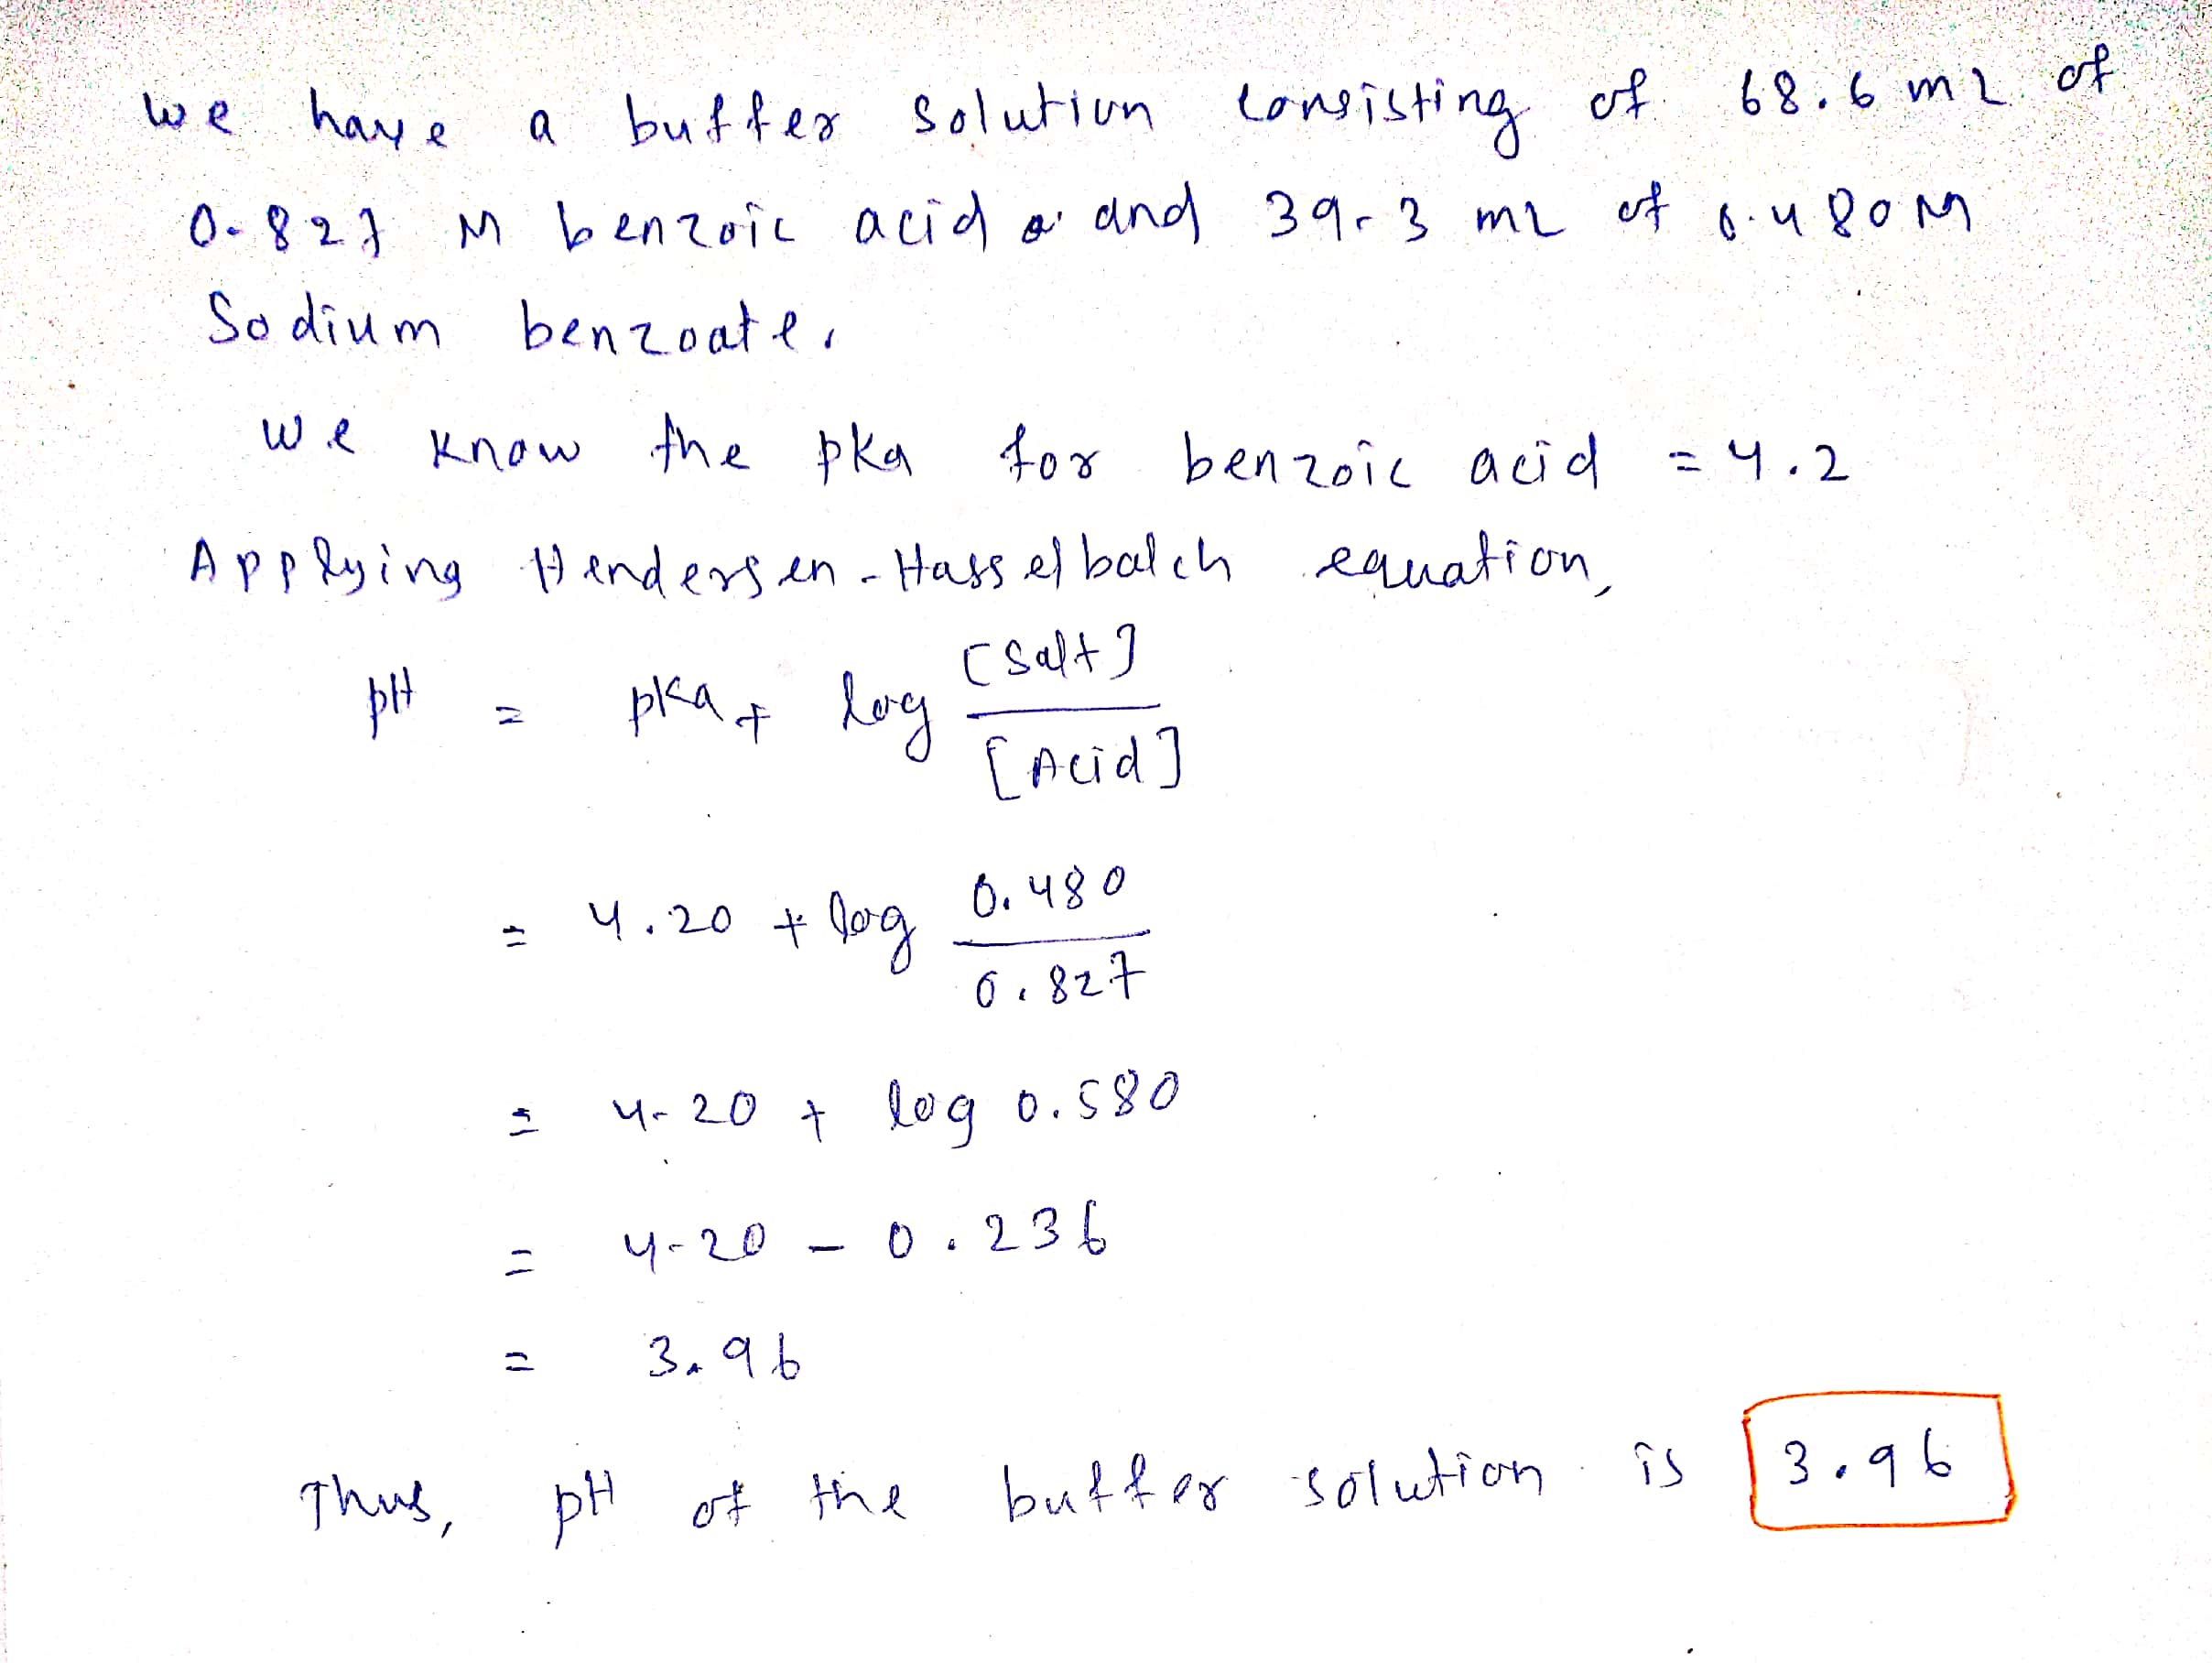 We have a buffer solution consisting of 68.6 mL of
0.827 M benzoic acid and 39.3 mL of 0.480 M
Sodium benzoate.
We know the pka for benzoic acid = 4.2
Applying Hendersen-Hasselbalch equation,
pH = pKa + log [Salt]
[Acid]
= 4.20 + log 0.480
0.827
= 4.20 + log 0.580
= 4.20 - 0.236
= 3.96
Thus, pH of the buffer solution is 3.96